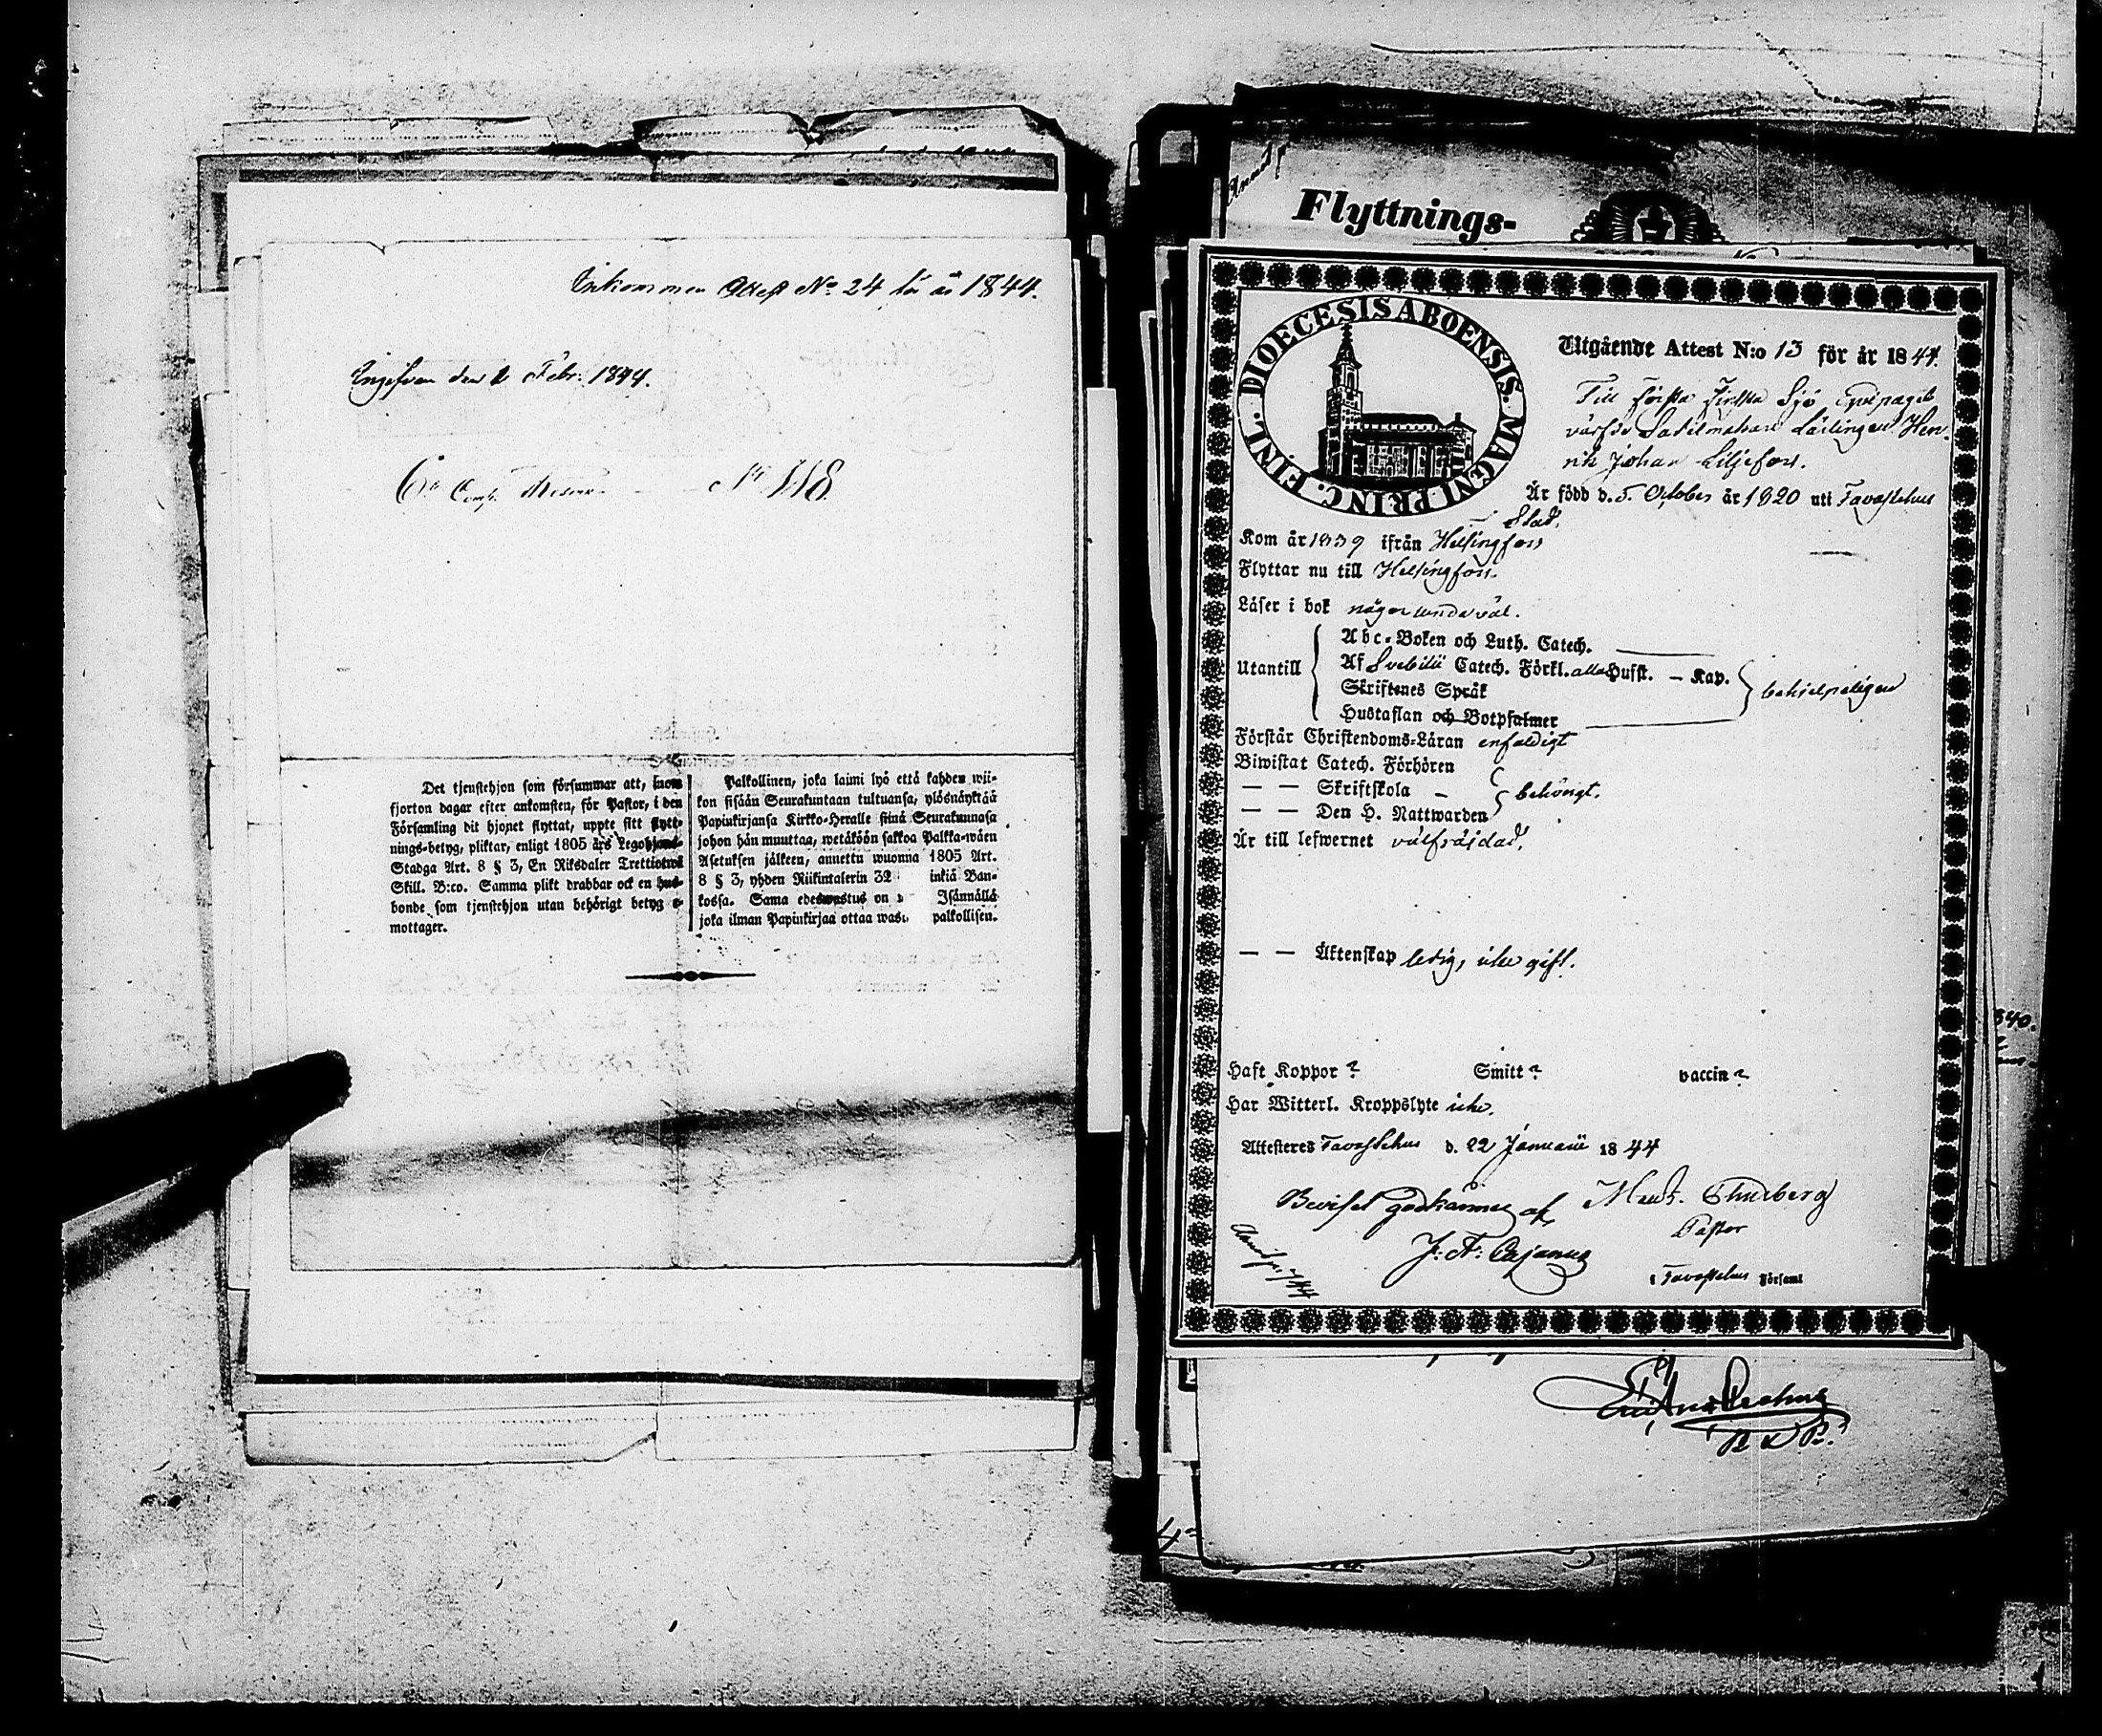 Inkommen Attest No 24 för år 1844.
Ingifven den 2 Febr: 1844.
6te Comp. No 118.
Det tjenstehjon som försummar att, inom
fjorton dagar efter ankomsten, för Pastor, i den
Församling dit hjonet flyttat, uppte sitt flytt-
nings-betyg, pliktar, enligt 1805 års Legohjons-
Stadga Art. 8 § 3, En Riksdaler Trettiotwå
Skill. B:co. Samma plikt drabbar ock en hus-
bonde som tjenstehjon utan behörigt betyg e-
mottager.
Palkollinen, joka laimi lyö että kahden wii-
kon sisään Seurakuntaan tultuansa, ylösnäyttää
Papinkirjansa Kirkko-Herralle siinä Seurakunnasa
johon hän muuttaa, wetäköön sakkoa Palkka-wäen
Asetuksen jälkeen, annettu wuonna 1805 Art.
8 § 3, yhden Riikintalerin 32 inkiä Ban-
kossa. Sama edeswastus on Isännällä
joka ilman Papinkirjaa ottaa wast palkollisen.
Flyttnings-
FINL. DIOECESIS ABOENSIS. MAGNI PRINC.
Utgående Attest N:o 13 för år 1844.
Till Första Finska Sjö Equipaget
värfde Sadelmakare Lärlingen Hen-
rik Johan Liljefors.
Är född d. 5 October år 1820 uti Tavastehus
Stad.
Kom år 1839 ifrån Helsingfors
Flyttar nu till Helsingfors.
Läser i bok någorlunda väl.
Utantill
Abc-Boken och Luth. Catech.
Af Svebilii Catech. Förkl. alla Hufst. — Kap.
Skriftenes Språk
Hustaflan och Botpsalmer
behielpeligen
Förstår Christendoms-Läran enfaldigt
Biwistat Catech. Förhören
— — Skriftskola —
— — Den H. Nattwarden
behörigt.
Är till lefwernet välfräjdad.
— — Äktenskap ledig, icke gift.
Haft Koppor ? Smitt ? vaccin ?
Har Witterl. Kroppslyte icke.
Attesteres Tavastehus d. 22 Januarii 1844
Beviset godkännes af
J: A: Cajanus
Pastor
i Tavastehus Församl
840.